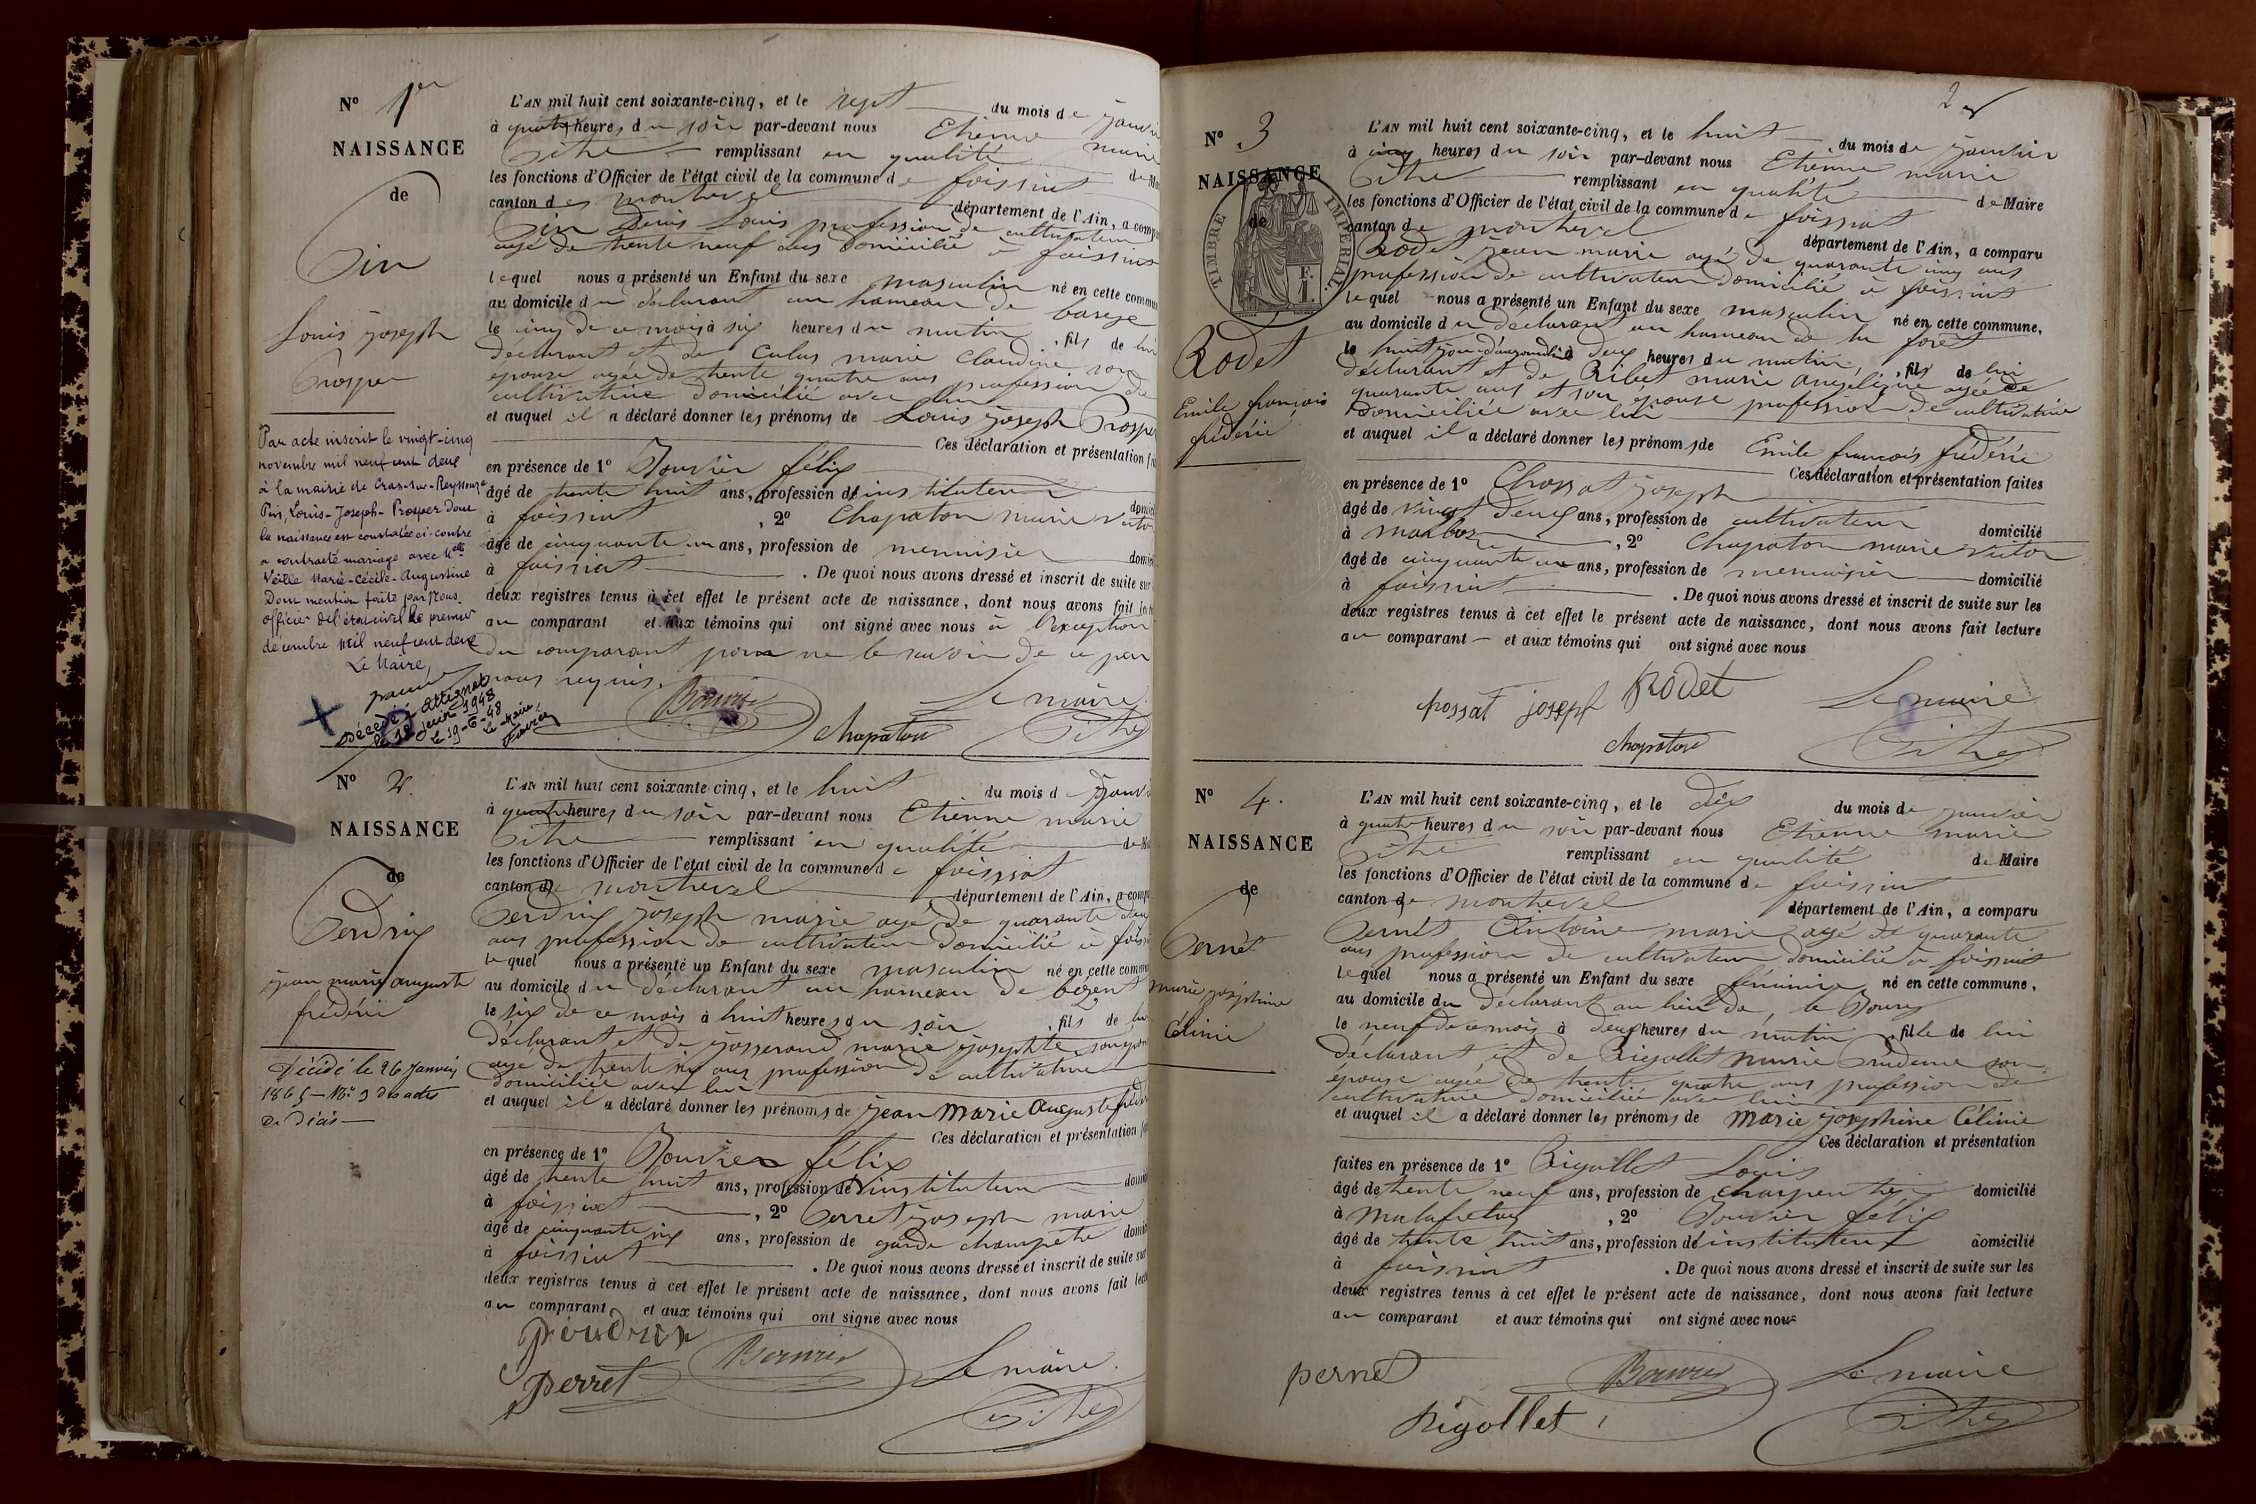 N° 1er
NAISSANCE
de
Pin
Louis joseph
Prosper
Par acte inscrit le vingt-cinq
novembre mil neuf cent deux
à la mairie de Cras-sur-Reyssouze
Pin, Louis-Joseph-Prosper dont
la naissance est constatée ci-contre
a contracté mariage avec Melle
Veille Marie-Cécile-Augustine
Dont mention faite par Nous
officier de l'état civil le premier
décembre mil neuf cent deux
Le Maire,
Décédé à Attignat
le 18 Juin 1948
le 19-6-48
Le Maire,
L'AN mil huit cent soixante-cinq, et le sept du mois de janvi
à quatre heures du soir par-devant nous Etienne marie
Pithe remplissant en qualité de Ma
les fonctions d'Officier de l'état civil de la commune de foissiat
canton de montrevel département de l'Ain, a compa
Pin Denis Louis profession de cultivateur
agé de trente neuf ans domicilié à foissiat
lequel nous a présenté un Enfant du sexe masculin né en cette commun
au domicile du déclarant au hameau de
le cinq de ce mois à six heures du matin, fils de lui
déclarant et de Calas marie Claudine son
épouse agée de trente quatre ans profession de
cultivatrice domiciliée avec lui
et auquel il a déclaré donner les prénoms de Louis joseph Prosper
Ces déclaration et présentation f
en présence de 1° Bouvier félix
âgé de trente huit ans, profession d'instituteur domici
à foissiat, 2° Chapaton marie victor
âgé de cinquante un ans, profession de menuisier domici
à foissiat. De quoi nous avons dressé et inscrit de suite sur
deux registres tenus à cet effet le présent acte de naissance, dont nous avons fait le
au comparant et aux témoins qui ont signé avec nous à l'exception
du comparant pour ne le savoir de ce par
nous requis.
Bouvier Le maire
chapaton Pithe
N° 2.
NAISSANCE
de
Perdrix
jean marie auguste
frédéric
Décédé le 26 Janvier
1865 - N° 3 des actes
de décès
L'AN mil huit cent soixante-cinq, et le huit du mois de janvi
à quatre heures du soir par-devant nous Etienne marie
Pithe remplissant en qualité de Ma
les fonctions d'Officier de l'état civil de la commune de foissiat
canton de montrevel département de l'Ain, a compa
Perdrix joseph marie agé de quarante deux
ans profession de cultivateur domicilié à foissi
lequel nous a présenté un Enfant du sexe masculin né en cette commu
au domicile du déclarant au hameau de bezent
le six de ce mois à huit heures du soir, fils de lui
déclarant et de josserand marie josephte son épou
agée de trente six ans profession de cultivatrice
domiciliée avec lui
et auquel il a déclaré donner les prénoms de jean Marie Auguste fréder
Ces déclaration et présentation fa
en présence de 1° Bouvier félix
âgé de trente huit ans, profession d'instituteur domici
à foissiat, 2° Perret joseph marie
âgé de cinquante six ans, profession de garde champetre domici
à foissiat. De quoi nous avons dressé et inscrit de suite sur
deux registres tenus à cet effet le présent acte de naissance, dont nous avons fait lect
au comparant et aux témoins qui ont signé avec nous
Bouvier Le maire
Perret Pithe
2
N° 3
NAISSANCE
de
TIMBRE IMPERIAL.
Rodet
Emile françois
fréderic
L'AN mil huit cent soixante-cinq, et le huit du mois de janvier
à cinq heures du soir par-devant nous Etienne marie
Pithe remplissant en qualité de Maire
les fonctions d'Officier de l'état civil de la commune de foissiat
canton de montrevel département de l'Ain, a comparu
Rodet jean marie agé de quarante cinq ans
profession de cultivateur domicilié à foissiat
lequel nous a présenté un Enfant du sexe masculin né en cette commune,
au domicile du déclarant au hameau de la forêt
le huit jour d'aujourd'hui à deux heures du matin, fils de lui
déclarant et de Ribet marie angelique agée de
quarante ans et son épouse profession de cultivatrice
domiciliée avec lui
et auquel il a déclaré donner les prénoms de Emile françois fréderic
Ces déclaration et présentation faites
en présence de 1° Chossat joseph
âgé de vingt deux ans, profession de cultivateur domicilié
à marboz, 2° Chapaton marie victor
âgé de cinquante un ans, profession de menuisier domicilié
à foissiat. De quoi nous avons dressé et inscrit de suite sur les
deux registres tenus à cet effet le présent acte de naissance, dont nous avons fait lecture
au comparant et aux témoins qui ont signé avec nous
chossat joseph Rodet Le maire
chapaton Pithe
N° 4.
NAISSANCE
de
Pernet
marie joséphine
Célinie
L'AN mil huit cent soixante-cinq, et le dix du mois de janvier
à quatre heures du soir par-devant nous Etienne marie
Pithe remplissant en qualité de Maire
les fonctions d'Officier de l'état civil de la commune de foissiat
canton de montrevel département de l'Ain, a comparu
Pernet Antoine marie agé de quarante
ans profession de cultivateur domicilié à foissiat
lequel nous a présenté un Enfant du sexe féminin né en cette commune,
au domicile du déclarant au lieu de le
le neuf de ce mois à deux heures du matin, fille de lui
déclarant et de Rigollet marie Prudence son
épouse agée de trente quatre ans profession de
cultivatrice domiciliée avec lui
et auquel il a déclaré donner les prénoms de Marie josephine Célinie
Ces déclaration et présentation
faites en présence de 1° Rigollet Louis
âgé de trente neuf ans, profession de charpentier domicilié
à Malafretaz, 2° Bouvier félix
âgé de trente huit ans, profession d'instituteur domicilié
à foissiat. De quoi nous avons dressé et inscrit de suite sur les
deux registres tenus à cet effet le présent acte de naissance, dont nous avons fait lecture
au comparant et aux témoins qui ont signé avec nous
pernet Bouvier Le maire
Rigollet Pithe